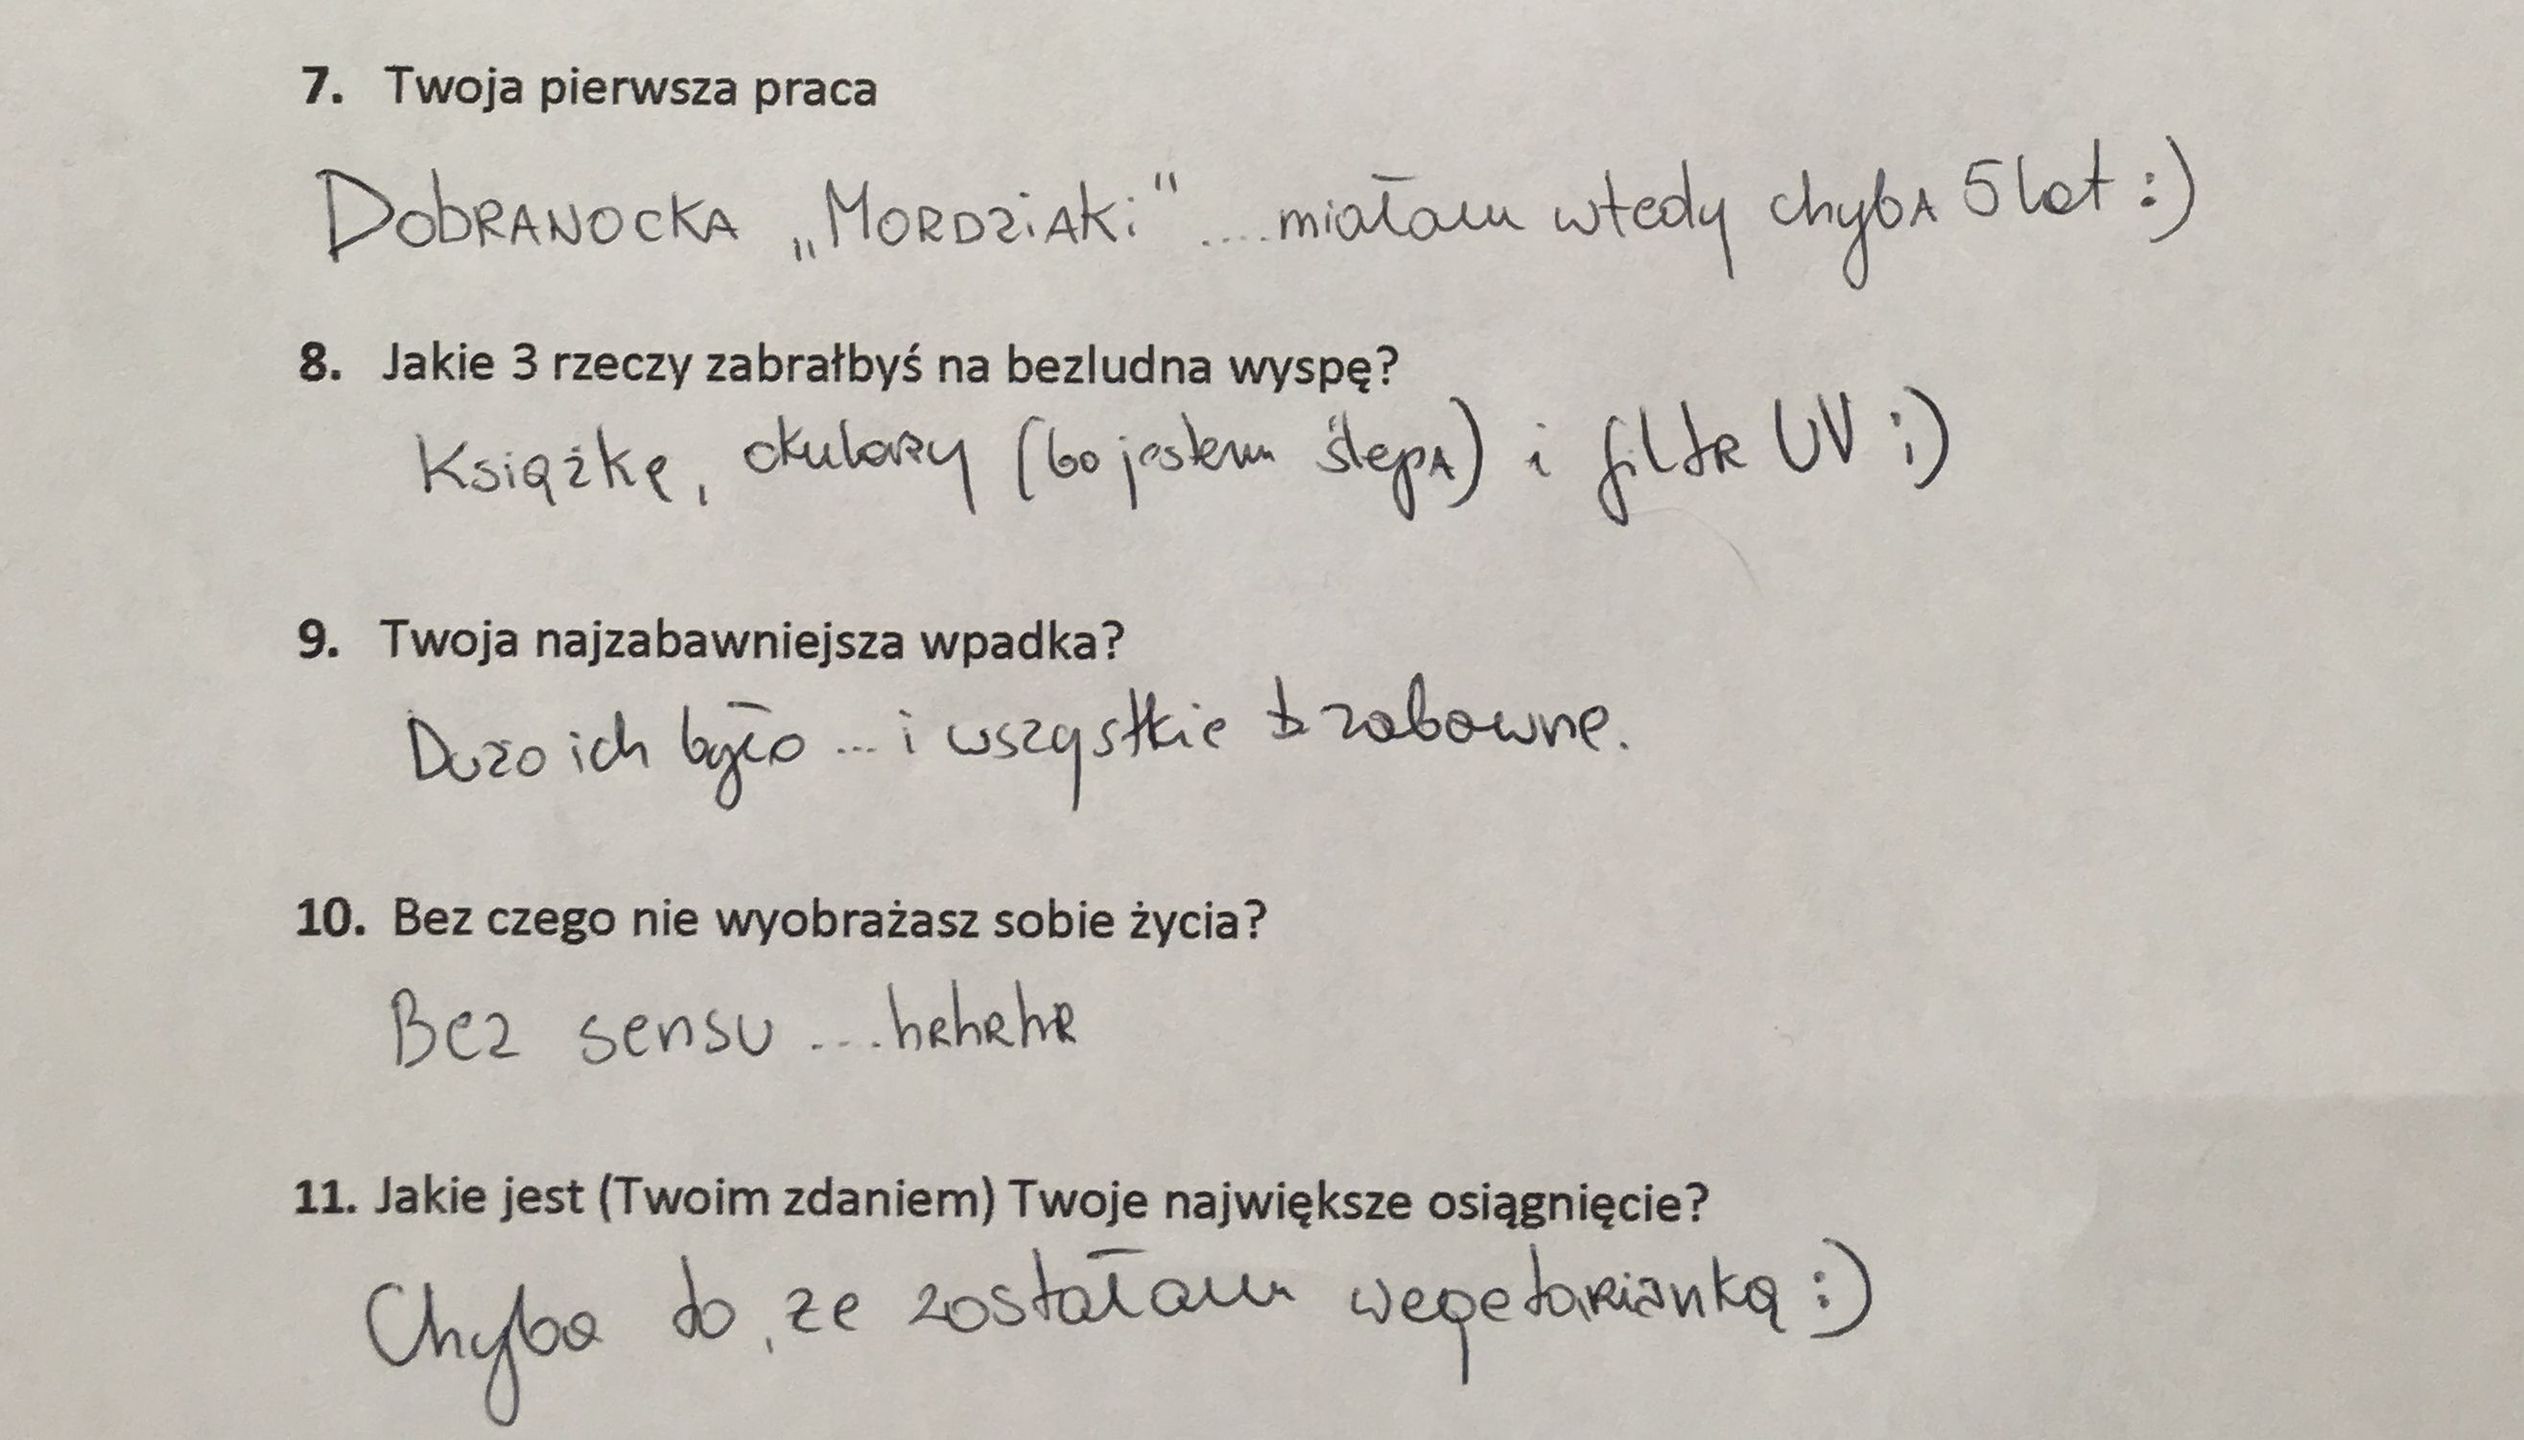 7. Twoja pierwsza praca
DOBRANOCKA „MORDZIAKI" ....miałam wtedy chyba 5 lat :)
8. Jakie 3 rzeczy zabrałbyś na bezludna wyspę?
Książkę, okulary (bo jestem ślepa) i filtr UV ;)
9. Twoja najzabawniejsza wpadka?
Dużo ich było ... i wszystkie zabawne.
10. Bez czego nie wyobrażasz sobie życia?
Bez sensu ....hehehe
11. Jakie jest (Twoim zdaniem) Twoje największe osiągnięcie?
Chyba to, że zostałam wegetarianką :)